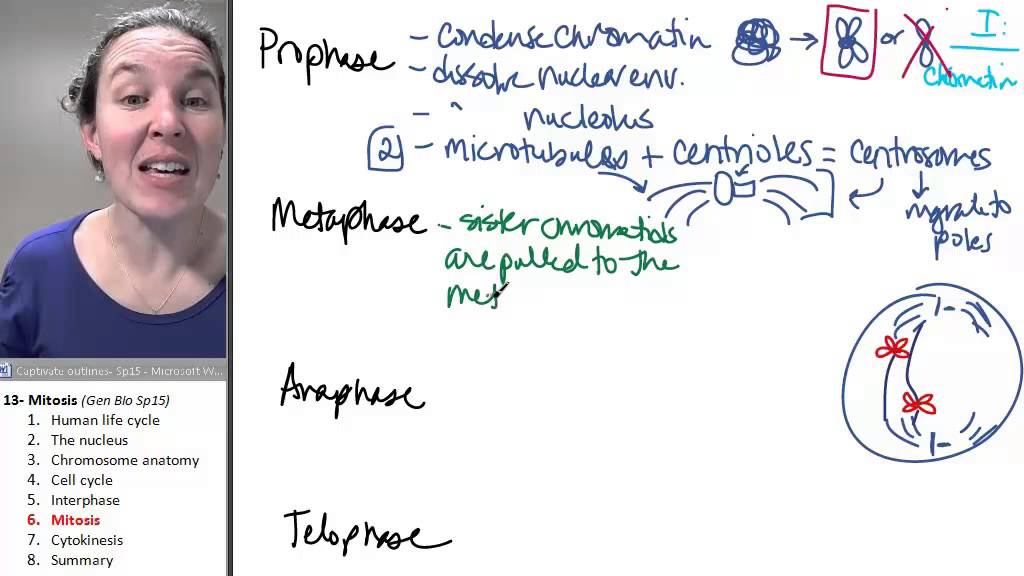 Prophase - condense chromatin → or I:
chromatin
- dissolve nuclear env.
- " nucleolus
2 - microtubules + centrioles = centrosomes
migrate to
poles
Metaphase - sister chromatids
are pulled to the
met
Anaphase
Telophase
Captivate outlines- Sp15 - Microsoft W...
13- Mitosis (Gen BIo Sp15)
1. Human life cycle
2. The nucleus
3. Chromosome anatomy
4. Cell cycle
5. Interphase
6. Mitosis
7. Cytokinesis
8. Summary